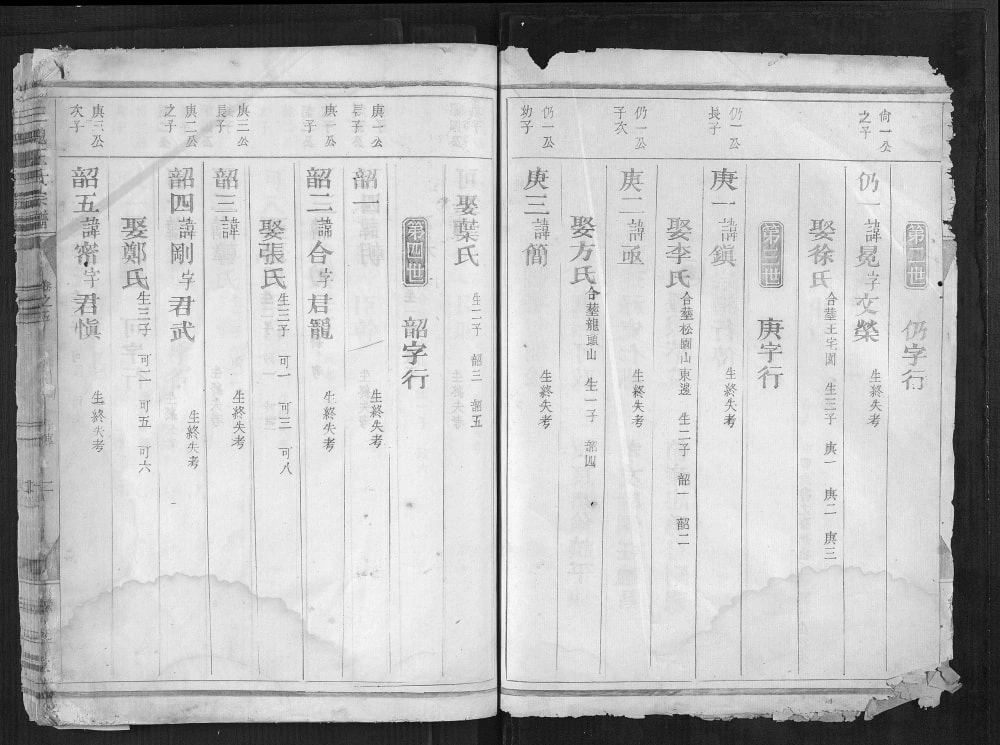 第二世
仍字行
尙一公
之子
仍一諱冕字文榮
生終失考
娶徐氏
合塟王宅園 生三子 庚一 庚二 庚三
第三世
庚字行
仍一公
長子
庚一諱鎭
生終失考
娶李氏
合塟松園山東邊 生二子 韶一 韶二
仍一公
子次
庚二諱亟
生終失考
娶方氏
合塟龍頭山 生一子 韶四
仍一公
幼子
庚三諱簡
生終失考
娶葉氏
生二子 韶三 韶五
第四世
韶字行
庚一公
長子
韶一
生終失考
庚一公
次子
韶二諱合字君寵
生終失考
娶張氏
生三子 可一 可三 可八
庚三公
長子
韶三諱
生終失考
庚二公
之子
韶四諱剛字君武
生終失考
娶鄭氏
生三子 可二 可五 可六
庚三公
次子
韶五諱密字君愼
生終失考